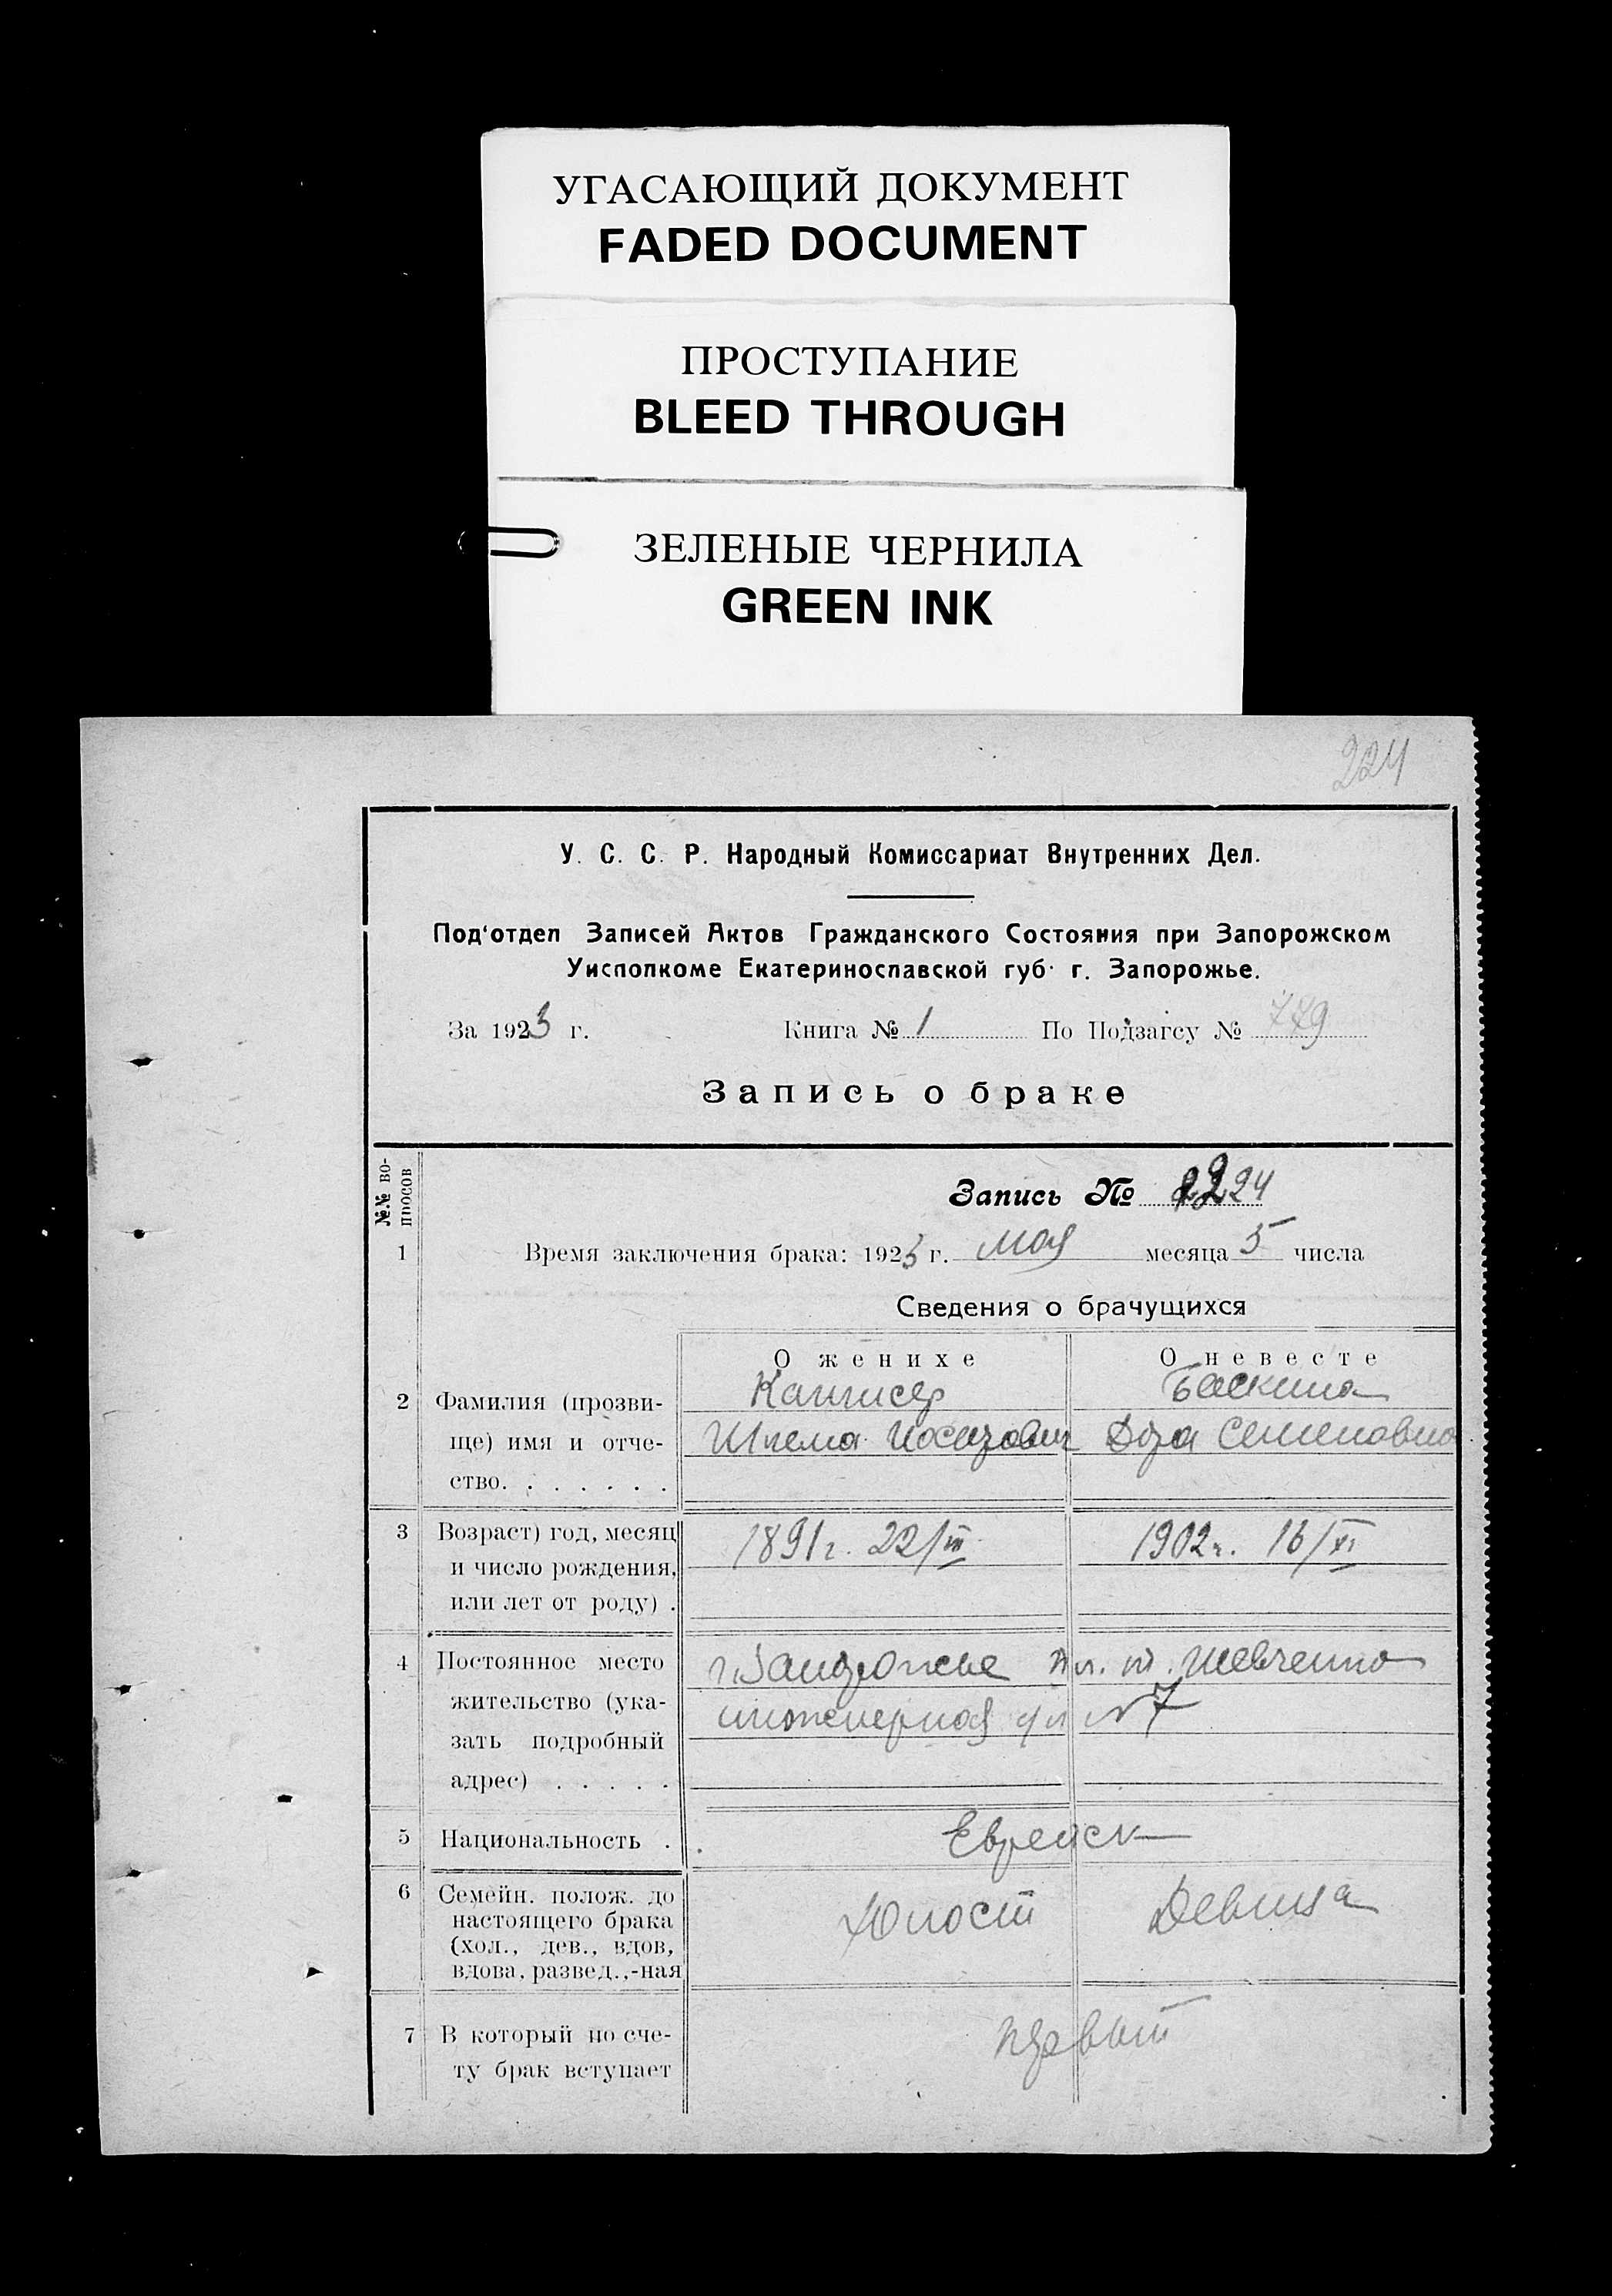 УГАСАЮЩИЙ ДОКУМЕНТ
FADED DOCUMENT
ПРОСТУПАНИЕ
BLEED THROUGH
ЗЕЛЕНЫЕ ЧЕРНИЛА
GREEN INK
224
У. С. С. Р. Народный Комиссариат Внутренних Дел.
Под‘отдел Записей Актов Гражданского Состояния при Запорожском
Уисполкоме Екатеринославской губ. г. Запорожье.
За 1923 г. Книга № 1 По Подзагсу № 779
Запись о браке
№№ во-
просов
Запись № 24
1 Время заключения брака: 1923 г. мая месяца 5 числа
Сведения о брачущихся
О женихе О невесте
2 Фамилия (прозви- Баскина
ще) имя и отче- Семеновна
ство. . . . . . .
3 Возраст) год, месяц 1891 г. 22/III 1902 г. 16/XI
и число рождения,
или лет от роду) .
4 Постоянное место г. Запорожье Шевченко
жительство (ука- инженерная ул № 7
зать подробный
адрес) . . . . .
5 Национальность . . Еврейск
6 Семейн. полож. до Холост Девица
настоящего брака
(хол., дев., вдов,
вдова, развед.,-ная
7 В который по сче- первый
ту брак вступает